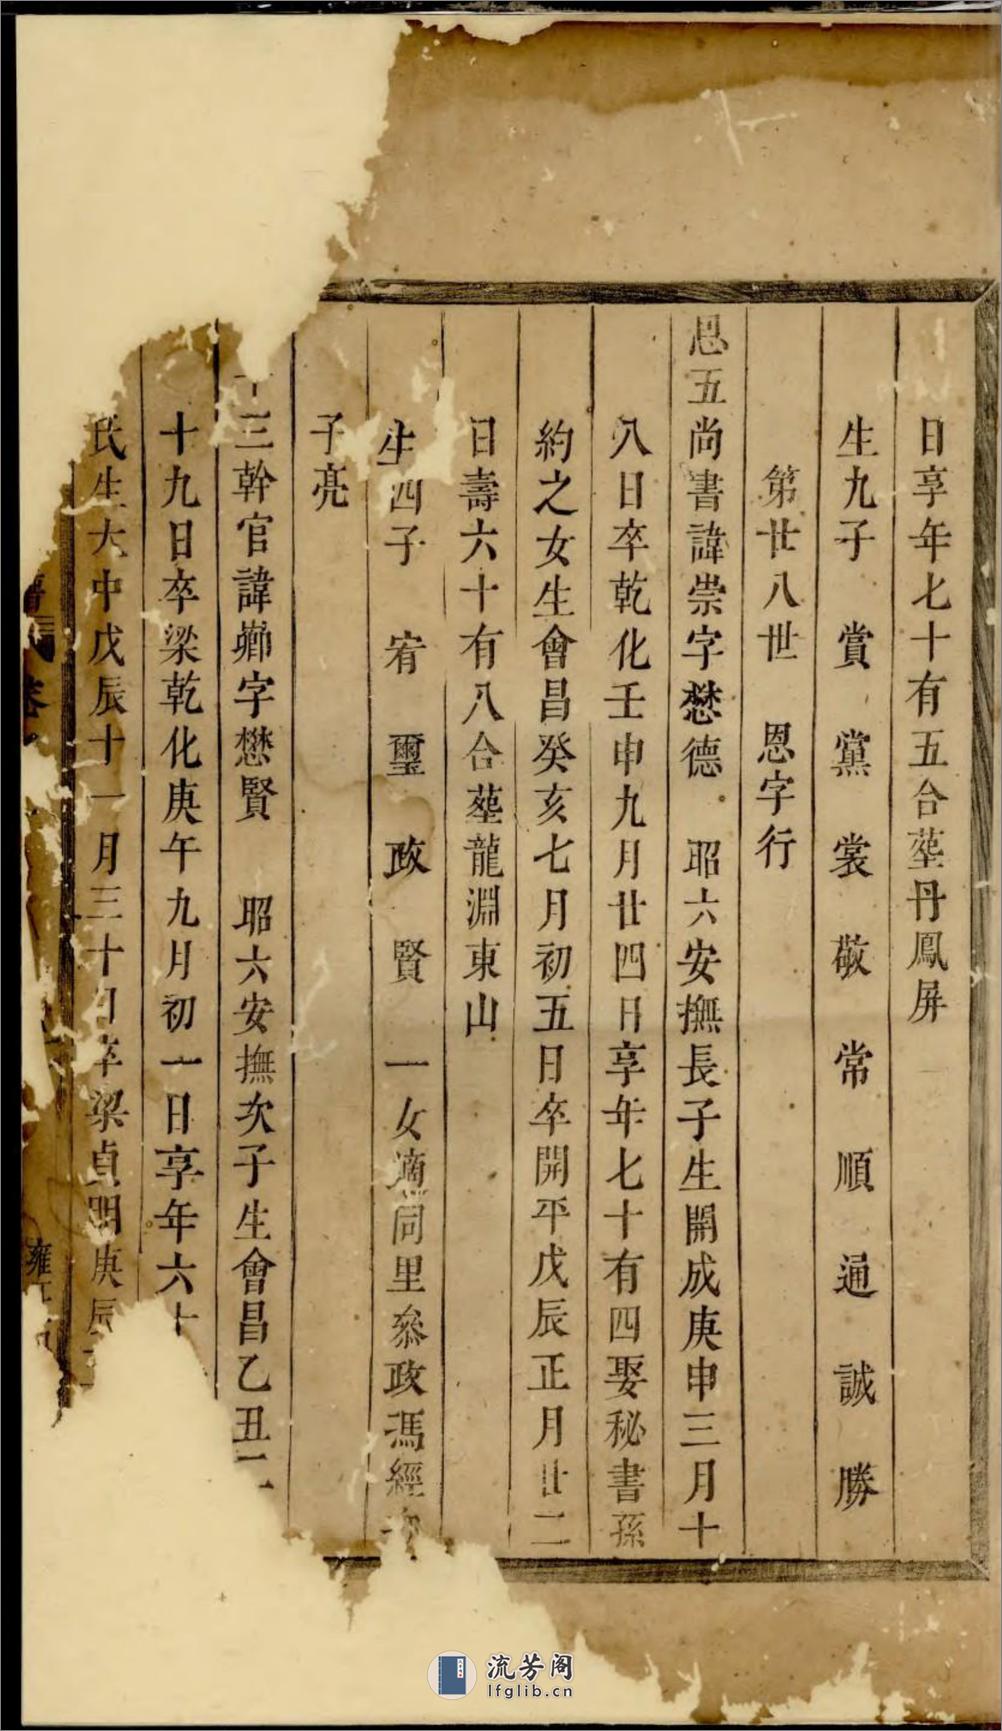 日享年七十有五合塟丹鳳屏
生九子 賞 黨 裳 敬 常 順 通 誠 勝
第廿八世 恩字行
恩五尚書諱崇字懋德 昭六安撫長子生開成庚申三月十
八日卒乾化壬申九月廿四日享年七十有四娶秘書孫
約之女生會昌癸亥七月初五日卒開平戊辰正月廿二
日壽六十有八合塟龍淵東山
生四子 宥 璽 政 賢 一女適同里叅政馮經
子亮
十三幹官諱字懋賢 昭六安撫次子生會昌乙丑二
十九日卒梁乾化庚午九月初一日享年六十
氏生大中戊辰十一月三十日卒梁貞明庚辰
譜 卷 雍
流芳阁
lfglib.cn